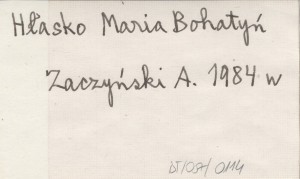 Hłasko Maria Bohatyń
Zaczyński A. 1984 w
DT/OST/0114